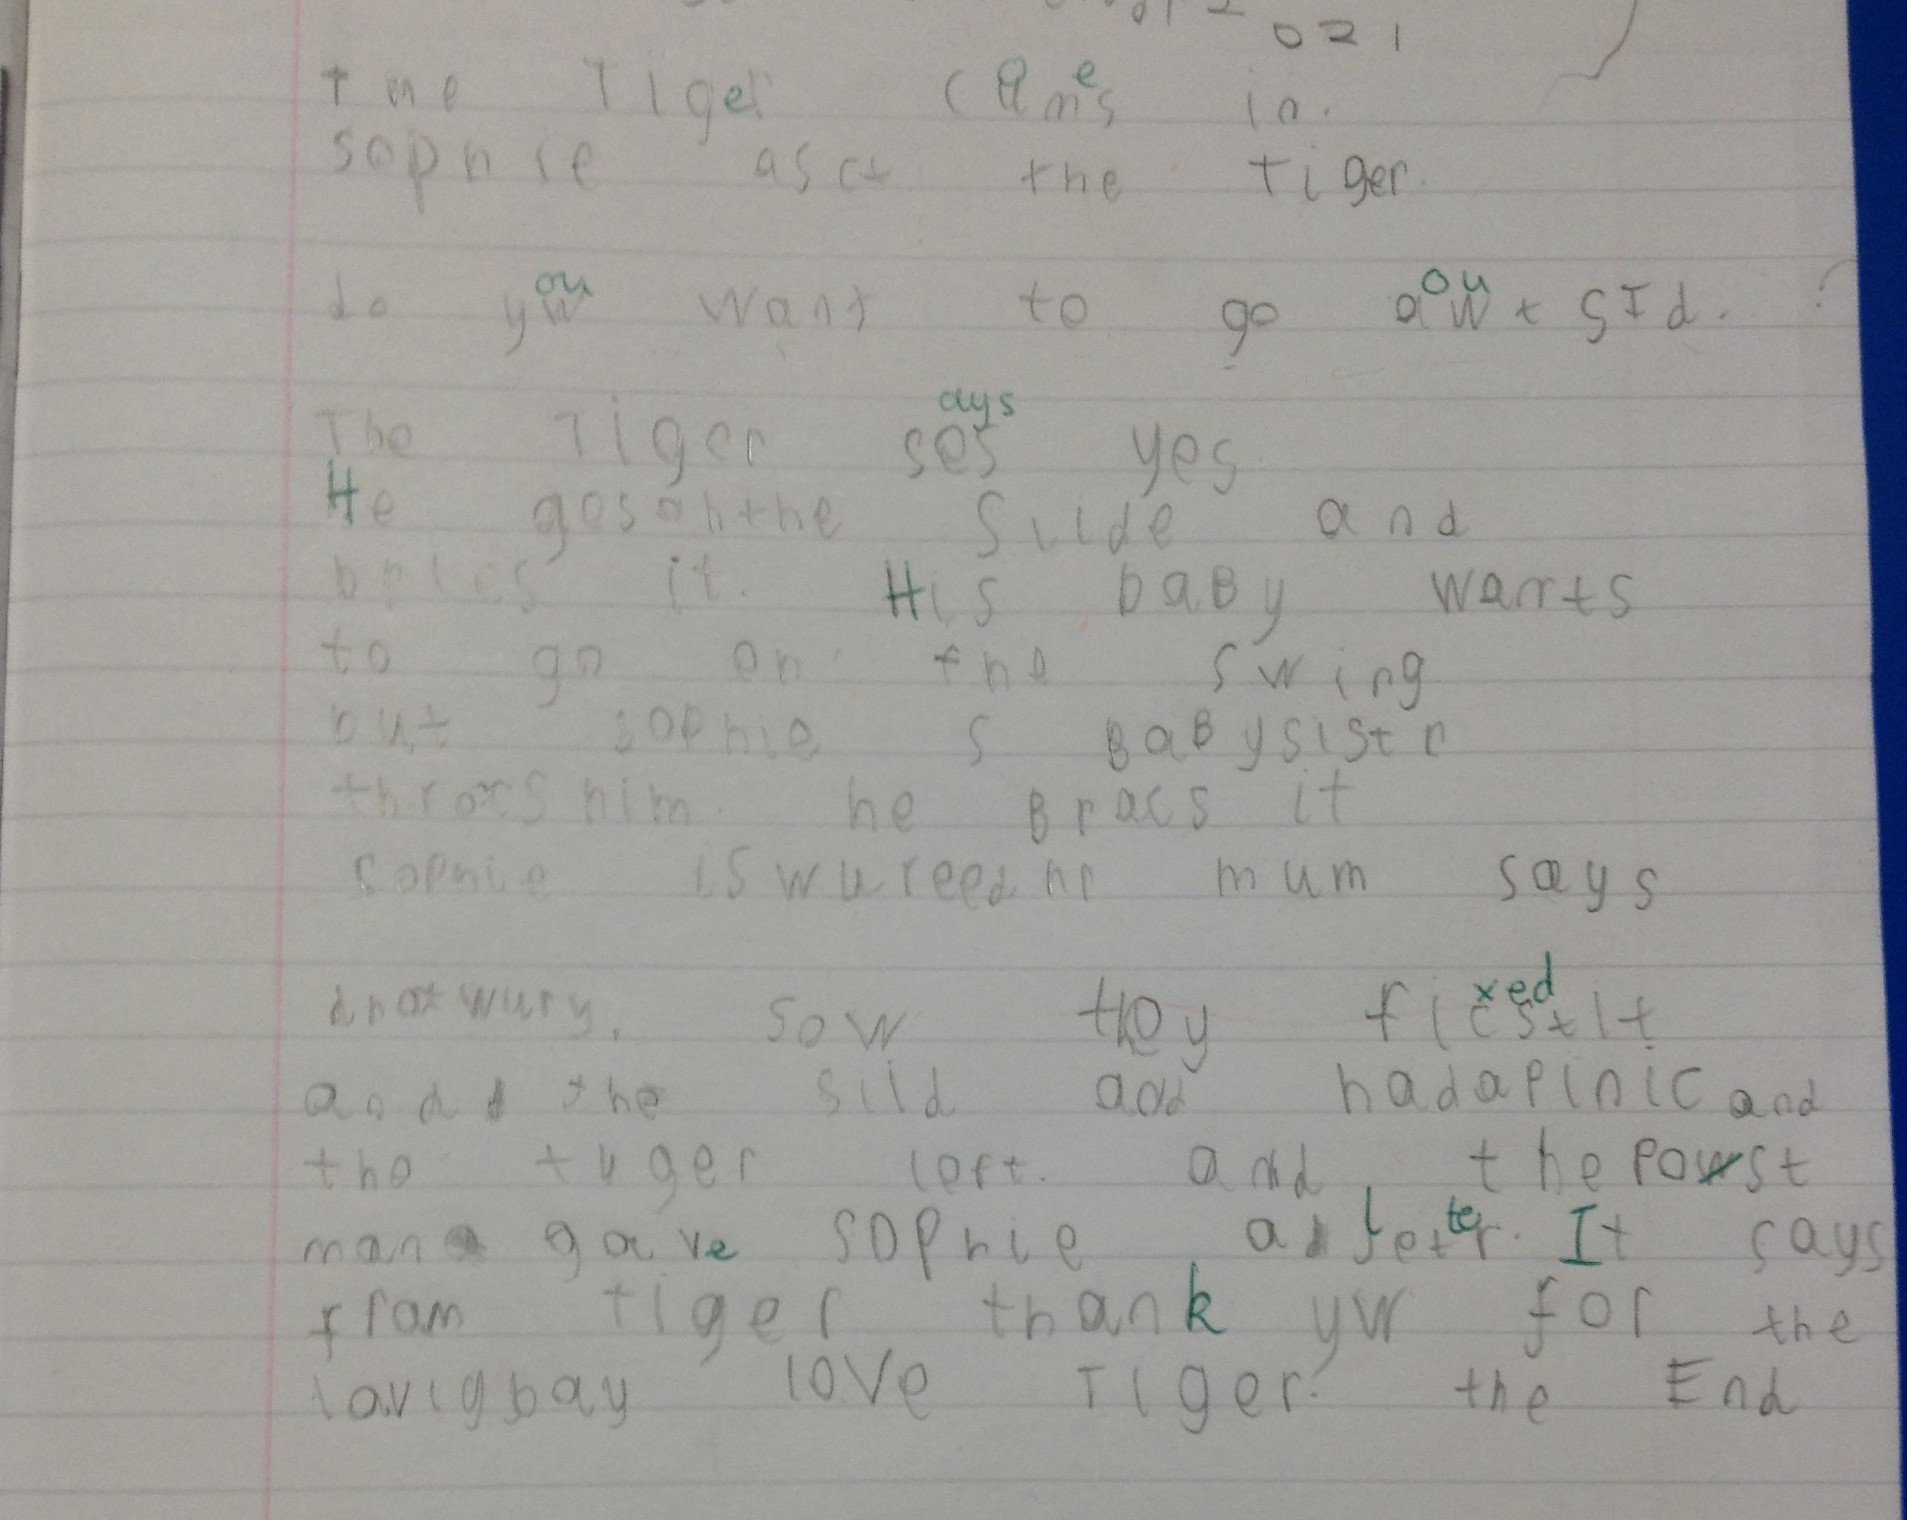 021
the Tiger cames in.
sophie asct the Tiger.
do yow ou want to go aowt ou sId. ?
The Tiger ses ays yes
He gosonthe Slide and
it. His baBy wants
to go on the swing
but sophie s BaBysistr
him. he Bracs it
sophie iswureed hr mum says
dnotwury. sow they ficstit xed
and the slid and hadapinic and
the tiger left. and the powst
man gave sophie a leter. ter It says
fram tiger thank yw for the
lavigbay love Tiger. the End